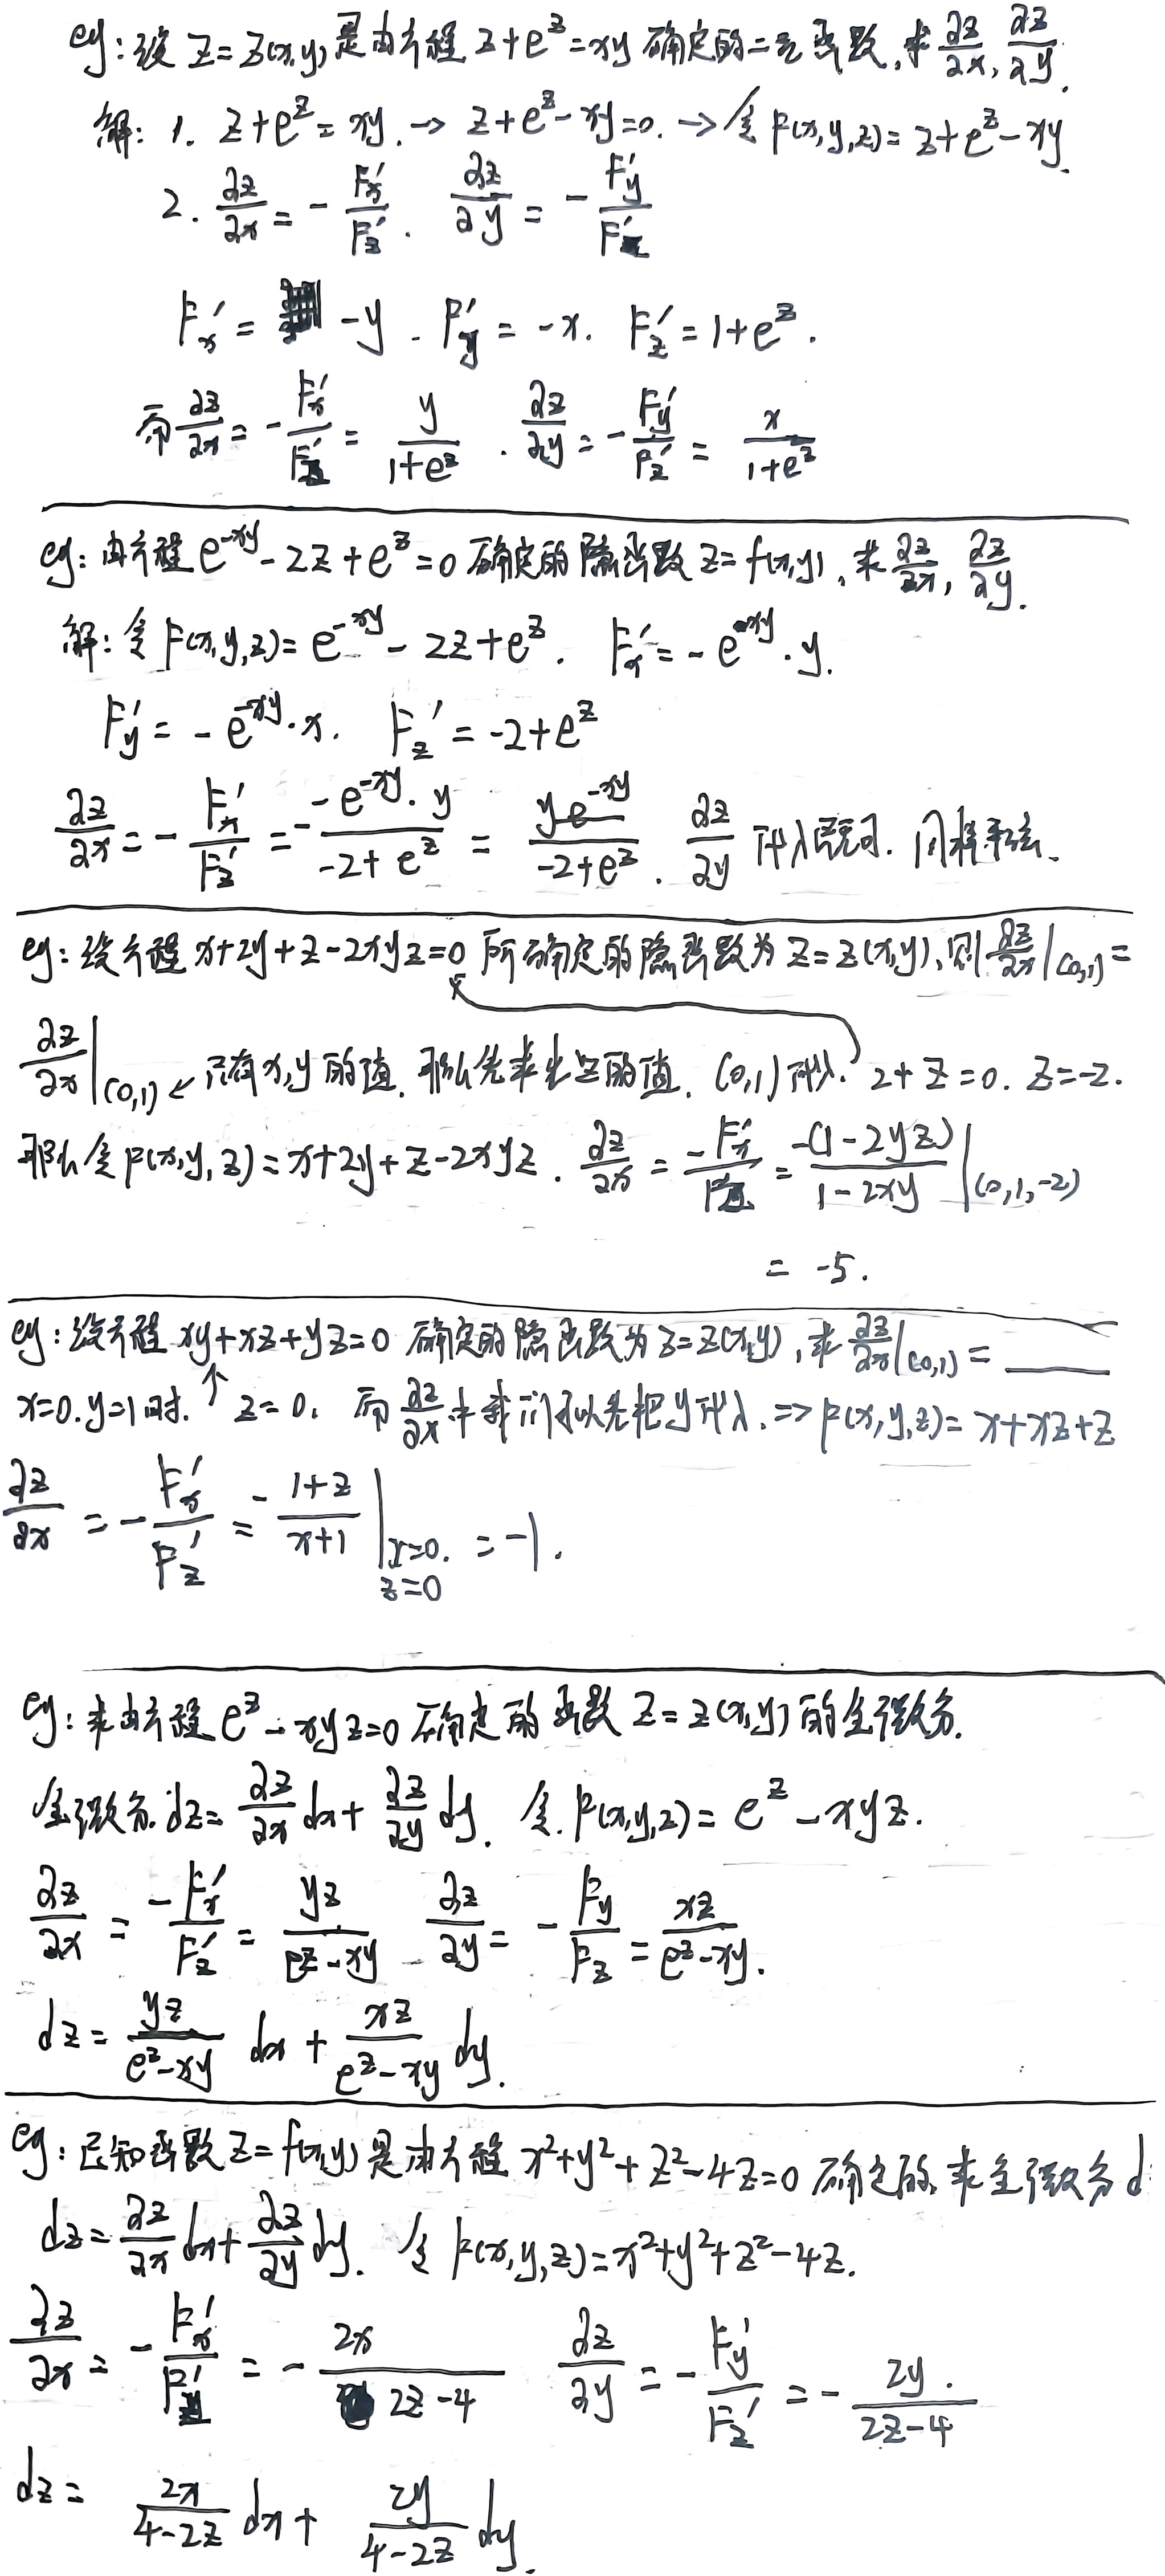 eg: 设 z=z(x,y) 是由方程 z+e^z=xy 确定的二元函数, 求 ∂z/∂x, ∂z/∂y.
解: 1. z+e^z=xy. → z+e^z-xy=0. → 令 F(x,y,z)=z+e^z-xy.
2. ∂z/∂x = - F'x/F'z . ∂z/∂y = - F'y/F'z
F'x = -y . F'y = -x. F'z = 1+e^z .
而 ∂z/∂x = - F'x/F'z = y/(1+e^z) . ∂z/∂y = - F'y/F'z = x/(1+e^z)
eg: 由方程 e^(-xy) - 2z + e^z = 0 确定的隐函数 z=f(x,y), 求 ∂z/∂x, ∂z/∂y.
解: 令 F(x,y,z) = e^(-xy) - 2z + e^z . F'x = - e^(-xy)·y.
F'y = - e^(-xy)·x. F'z = -2+e^z
∂z/∂x = - F'x/F'z = - (-e^(-xy)·y)/(-2+e^z) = ye^(-xy)/(-2+e^z) . ∂z/∂y 代入既可. 同样乘法.
eg: 设方程 x+2y+z-2xyz=0 所确定的隐函数为 z=z(x,y), 则 ∂z/∂x|(0,1) =
∂z/∂x|(0,1) ← 只有 x,y 的值. 那么先求出 z 的值. (0,1) 代入. 2+z=0. z=-2.
那么令 F(x,y,z)=x+2y+z-2xyz . ∂z/∂x = -F'x/F'z = -(1-2yz)/(1-2xy)|(0,1,-2)
= -5.
eg: 设方程 xy+xz+yz=0 确定的隐函数为 z=z(x,y), 求 ∂z/∂x|(0,1) = ____
x=0.y=1时. ↑ z=0. 而 ∂z/∂x 中我们可以先把y代入. => F(x,y,z)= x+xz+z
∂z/∂x = - F'x/F'z = - (1+z)/(x+1) | x=0. z=0 = -1.
eg: 求由方程 e^z - xyz=0 确定的函数 z=z(x,y) 的全微分.
全微分. dz = ∂z/∂x dx + ∂z/∂y dy. 令. F(x,y,z) = e^z - xyz.
∂z/∂x = -F'x/F'z = yz/(e^z-xy) ∂z/∂y = - Fy/Fz = xz/(e^z-xy).
dz = yz/(e^z-xy) dx + xz/(e^z-xy) dy.
eg: 已知函数 z=f(x,y) 是由方程 x²+y²+z²-4z=0 确定的, 求全微分 d
dz = ∂z/∂x dx + ∂z/∂y dy. 令 F(x,y,z)=x²+y²+z²-4z.
∂z/∂x = - F'x/F'z = - 2x/(2z-4) ∂z/∂y = - F'y/F'z = - 2y/(2z-4) .
dz = 2x/(4-2z) dx + 2y/(4-2z) dy.